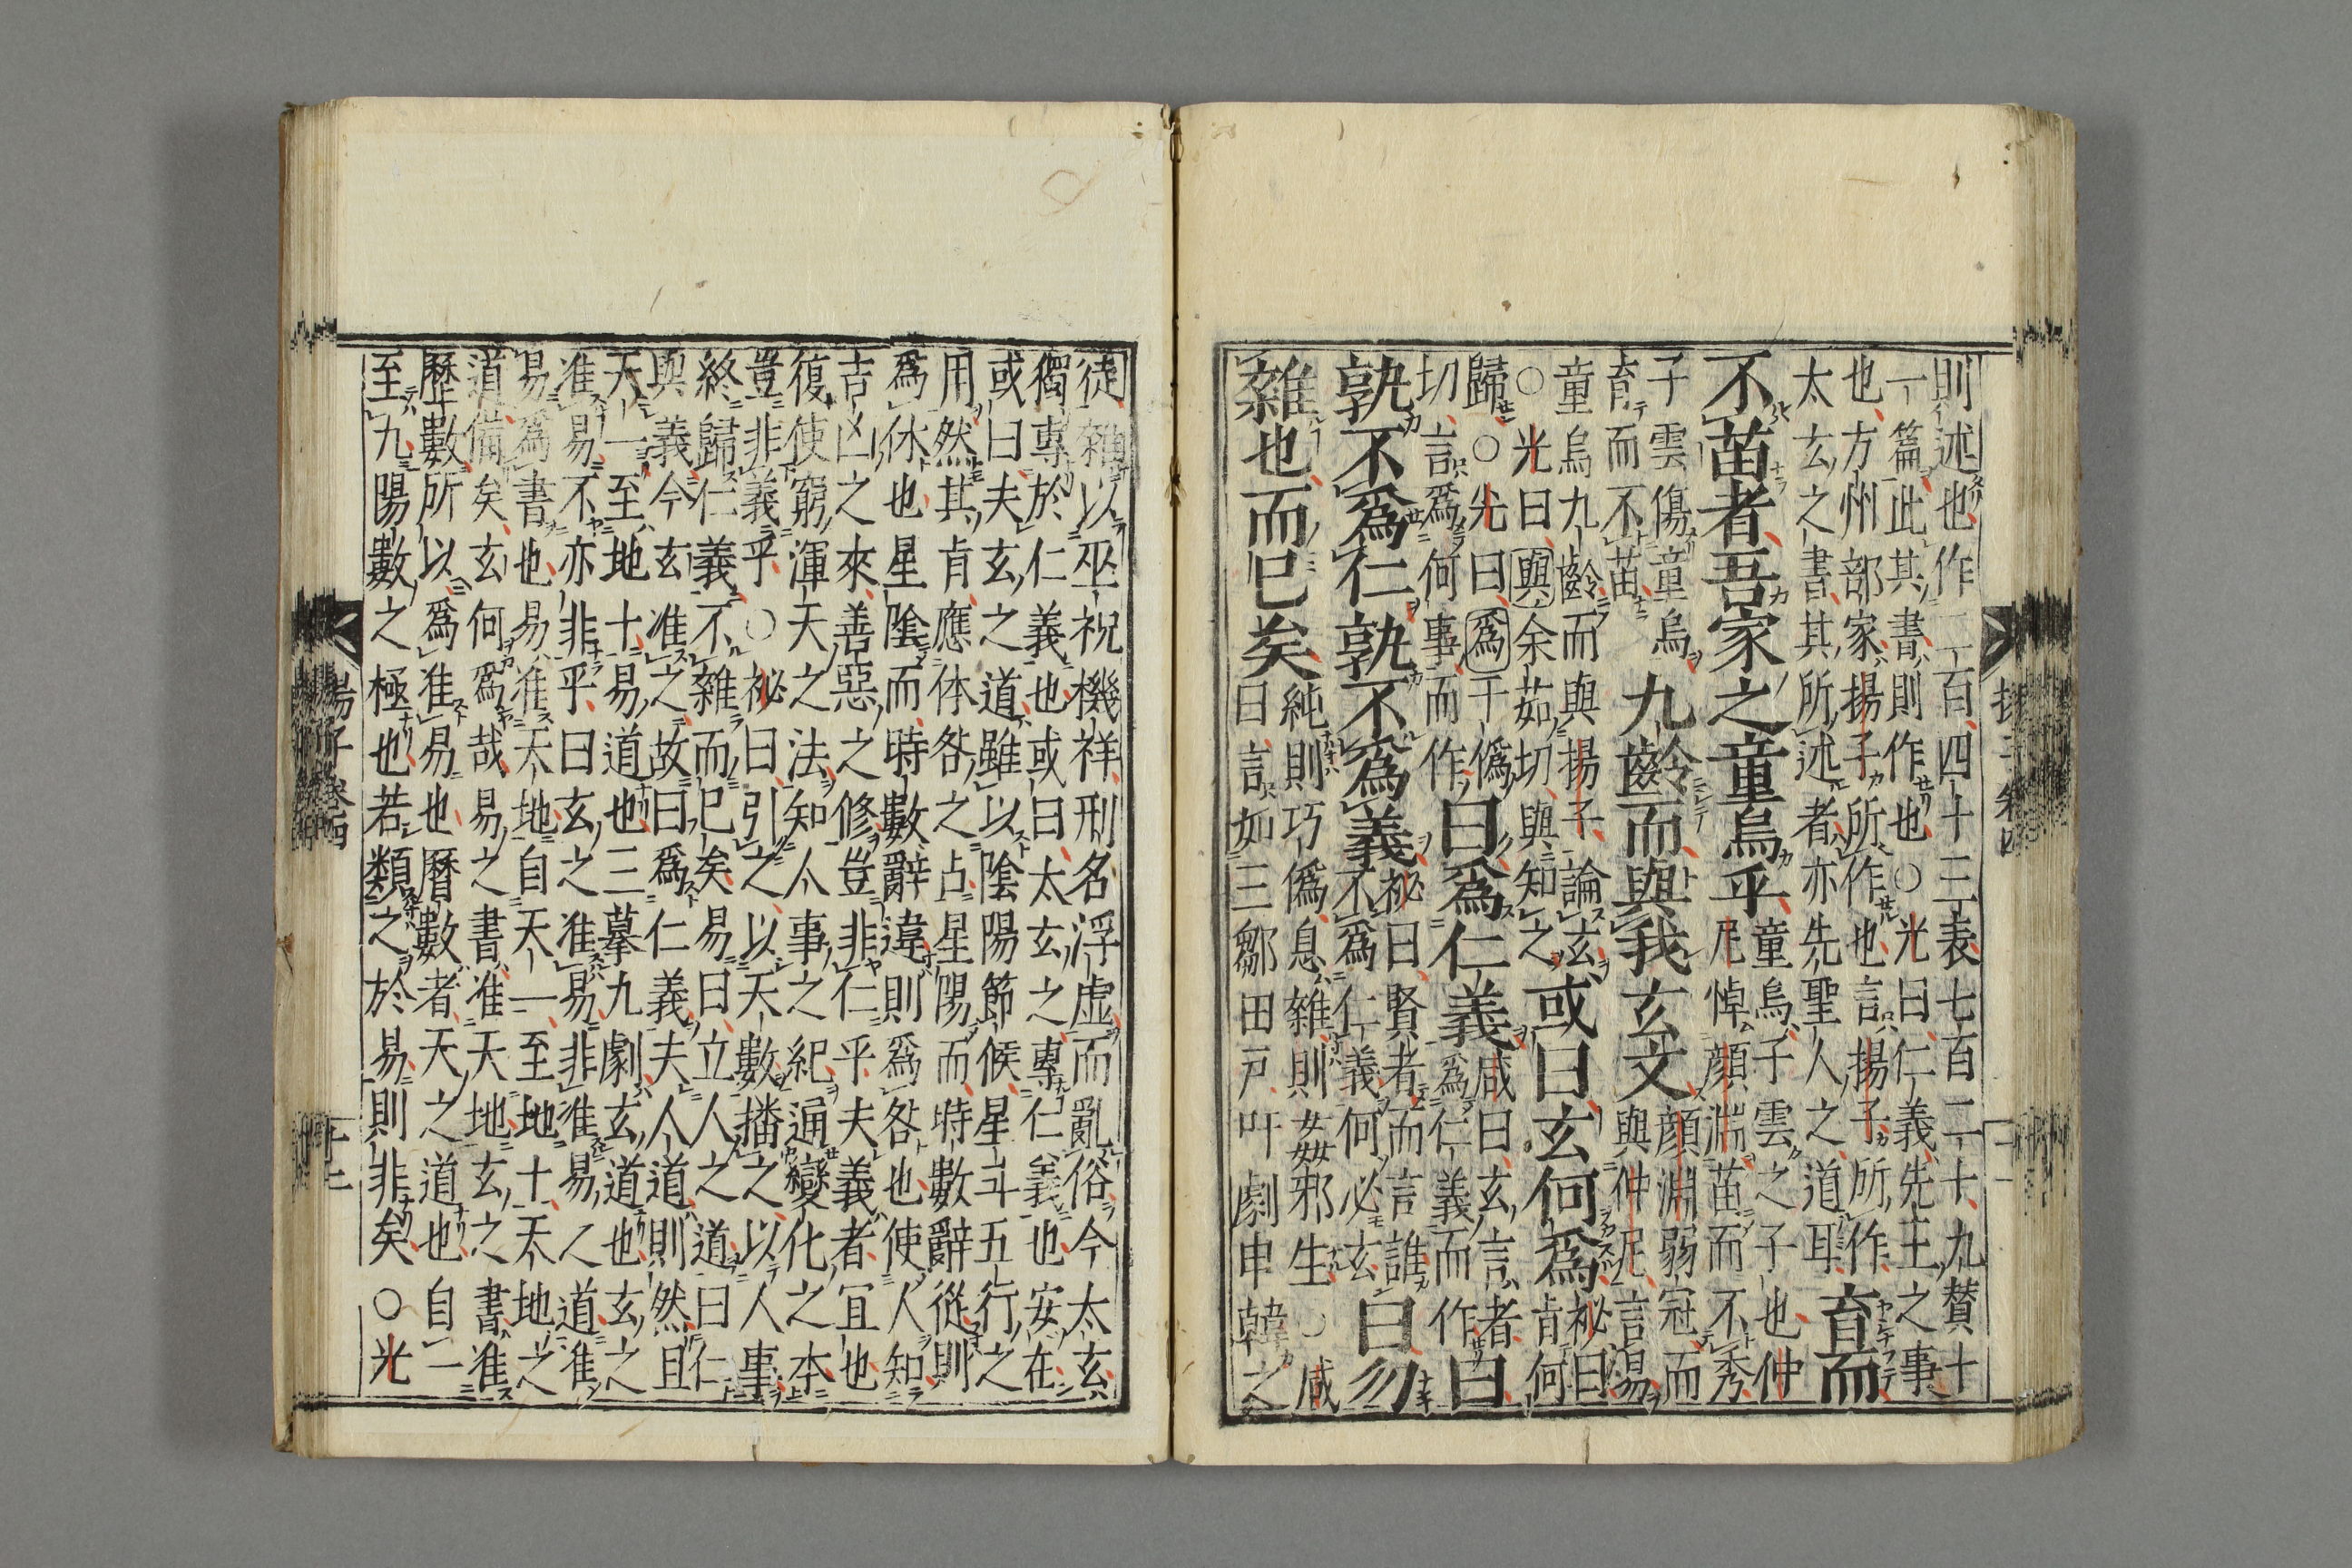 則述也作二百四十三表七百二十九賛十
一篇此其書則作也○光曰仁義先王之事
也方州部家揚子所作也言揚子所作
太玄之書其所述者亦先聖人之道耳育而
不苗者吾家之童烏乎童烏子雲之子也仲
尼悼顔淵苗而不秀
子雲傷童烏
育而不苗九齡而與我玄文顔淵弱冠而
與仲尼言易
童烏九齡而與揚子論玄
○光曰與余茹切與知之或曰玄何爲祕曰
肯何
歸○光曰爲于僞
切言爲何事而作曰爲仁義咸曰玄言者
爲仁義而作曰
孰不爲仁孰不爲義祕曰賢者而言誰
不爲仁義何必玄曰勿
雜也而已矣純則巧僞息雜則姦邪生○咸
曰言如三鄒田戸叶劇申韓之
徒雜以巫祝機祥刑名浮虚而亂俗今太玄
獨專於仁義也或曰太玄之專仁義也安在
或曰夫玄之道雖以陰陽節候星斗五行之
用然其肯應体咎之占星陽而時數辭從則
爲休也星陰而時數辭違則爲咎也使人知
吉凶之來善惡之修豈非仁乎夫義者宜也
復使窮渾天之法知人事之紀通變化之本
豈非義乎○祕曰引之以天數播之以人事
終歸仁義不雜而已矣易曰立人之道曰仁
與義今玄准之故曰爲仁義夫人道則然且
天一至地十易道也三摹九劇玄道也玄之
准易不亦非乎曰玄之准易非准易人道准
易爲書也易准天地自天一至地十天地之
道備矣玄何爲哉易之書准天地玄之書准
歷數所以爲准易也曆數者天之道也自一
至九陽數之極也若類之於易則非矣○光
揚子卷四
十二